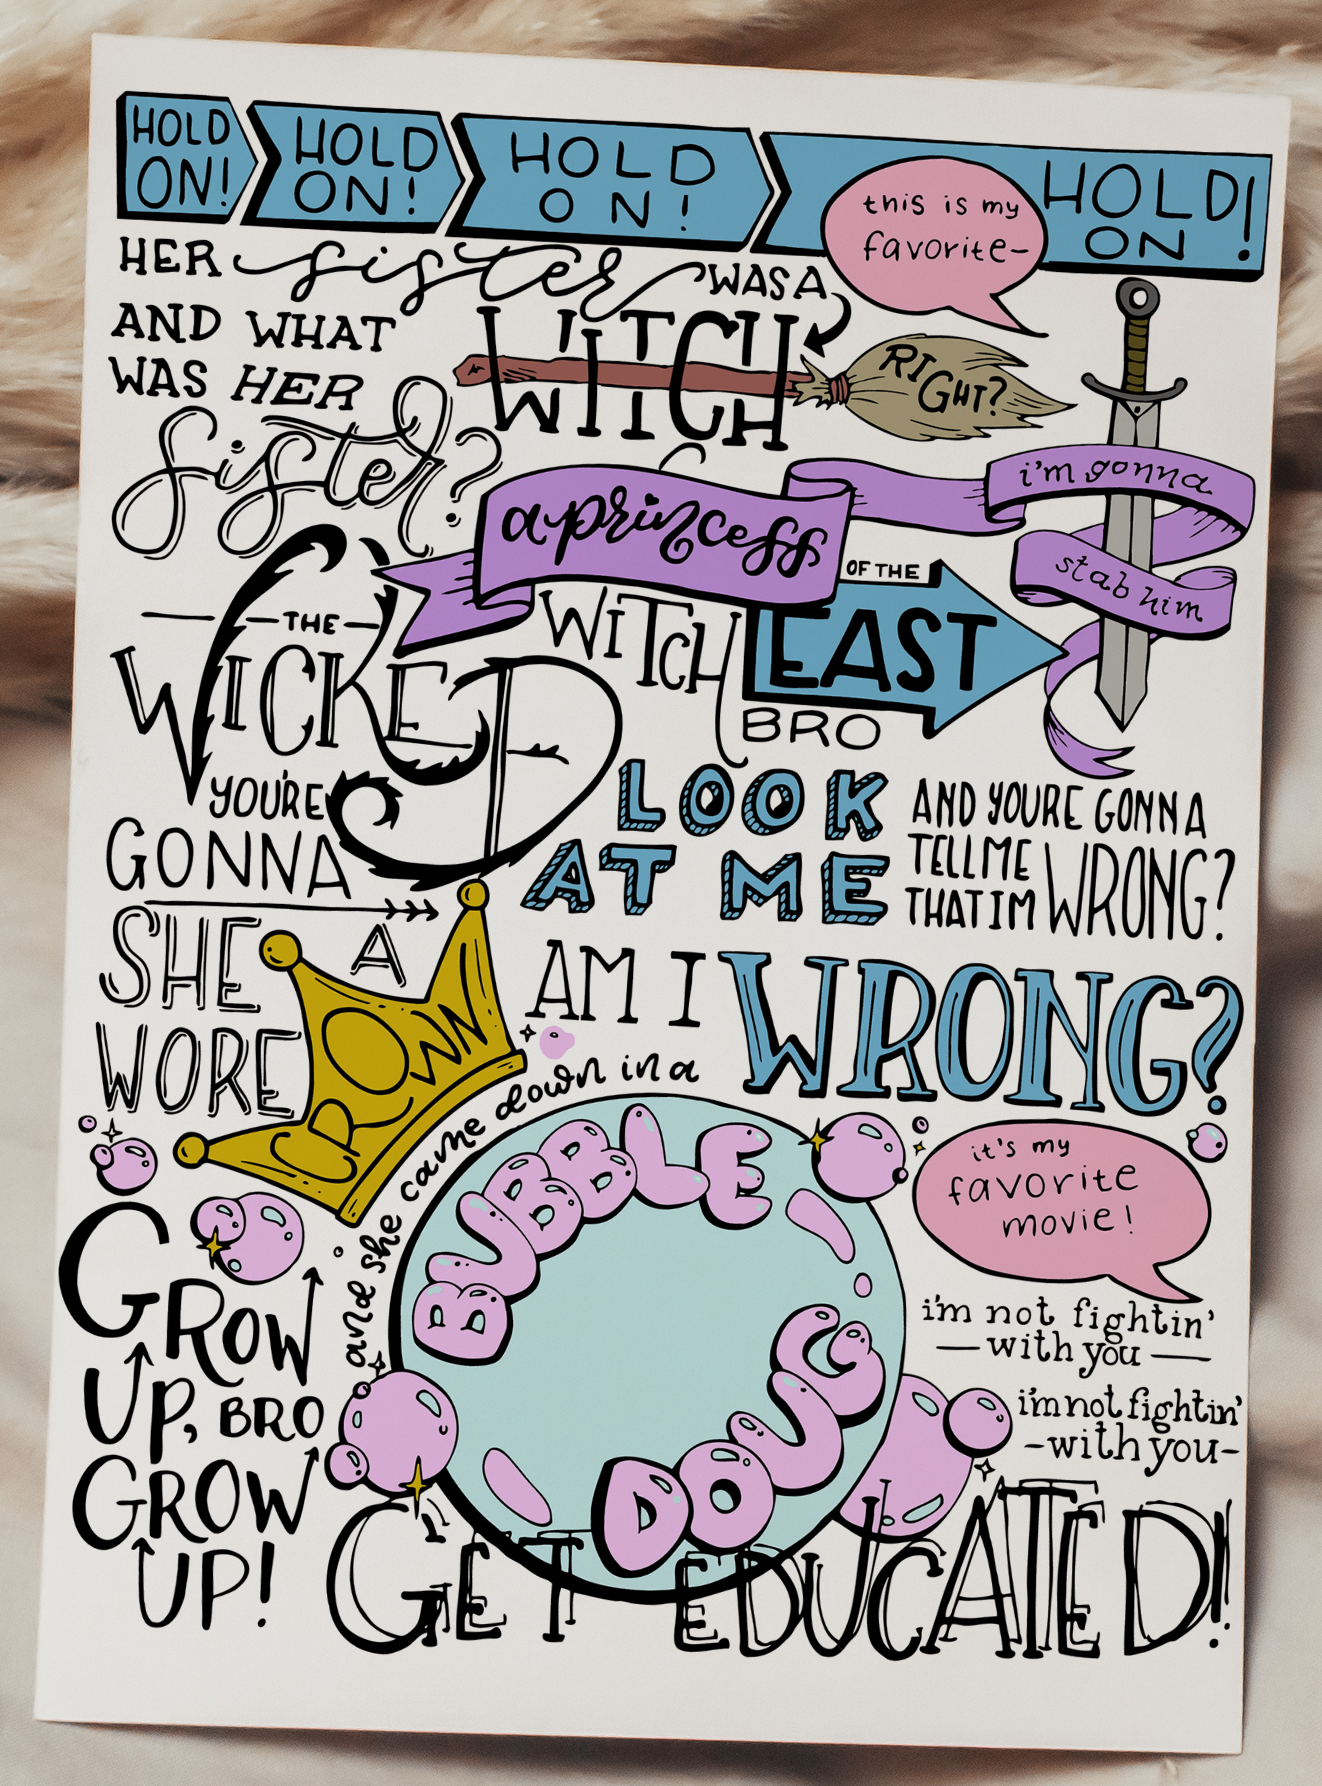 HOLD ON!
HOLD ON!
HOLD ON!
HOLD ON!
this is my
favorite-
HER sister WAS A
WITCH
RIGHT?
AND WHAT
WAS HER
sister?
a princess
i'm gonna
stab him
THE
WICKED
WITCH
OF THE
EAST
BRO
YOU'RE
GONNA
LOOK
AT ME
AND YOURE GONNA
TELL ME
THAT IM WRONG?
AM I WRONG?
SHE
WORE
A
CROWN
and she came down in a
BUBBLE
DOUG
it's my
favorite
movie!
GROW
UP, BRO
GROW
UP!
i'm not fightin'
— with you —
i'm not fightin'
-with you-
GET EDUCATED!